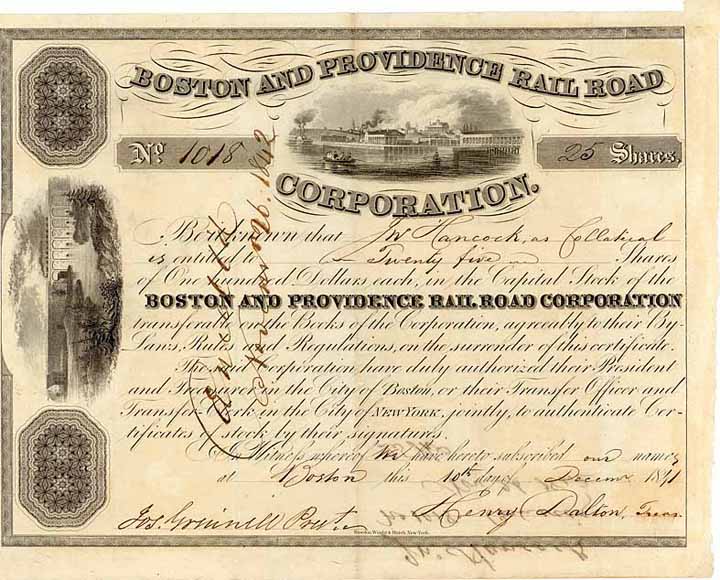 BOSTON AND PROVIDENCE RAIL ROAD
No. 1018
25 Shares.
CORPORATION.
Be it known that Jn Hancock, as Collateral
is entitled to Twenty five Shares
of One hundred Dollars each, in the Capital Stock of the
BOSTON AND PROVIDENCE RAIL ROAD CORPORATION
transferable on the Books of the Corporation, agreeably to their By-
Laws, Rules and Regulations, on the surrender of this certificate.
The said Corporation have duly authorized their President
and Treasurer in the City of Boston, or their Transfer Officer and
Transfer Clerk in the City of NEW YORK, jointly, to authenticate Cer-
tificates of stock by their signatures.
In Witness whereof We have hereto subscribed our names
at Boston this 10th day of Decemr 1841
Jos. Grinnell Prest
Henry Dalton, Treas.
Cancelled
1842